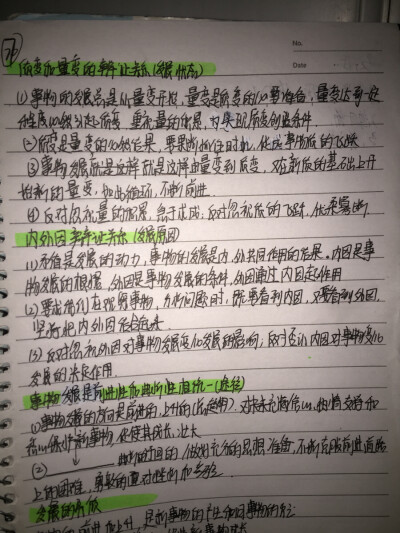 No.
Date
质变和量变的辩证关系(发展状态)
(1)事物的发展总是从量变开始,量变是质变的必要准备,量变达到一定
程度必然引起质变,重视量的积累,为实现质变创造条件
(2)质变是量变的必然结果,要果断抓住时机,促成事物质的飞跃
(3)事物发展就是这样由量变到质变,又在新质的基础上开
始新的量变,如此循环,不断前进
(4)反对忽视量的积累,急于求成,反对忽视质的飞跃,优柔寡断
内外因辩证关系(发展原因)
(1)矛盾是发展的动力,事物的发展是内外共同作用的结果。内因是事
物发展的根据,外因是事物发展的条件,外因通过内因起作用
(2)要求我们在观察事物,分析问题时,既要看到内因,又要看到外因,
坚持把内外因结合起来
(3)反对忽视外因对事物发展变化发展的影响,反对否认内因对事物变化
发展的决定作用
事物发展是前进性和曲折性的统一(途径)
(1)事物发展的方向是前进的,上升的,对未来充满信心,热情支持和
新事物,促使其成长,壮大
(2) 做好充分的思想准备,不断克服前进道路
上的困难,勇敢的面对挫折和考验
发展的实质